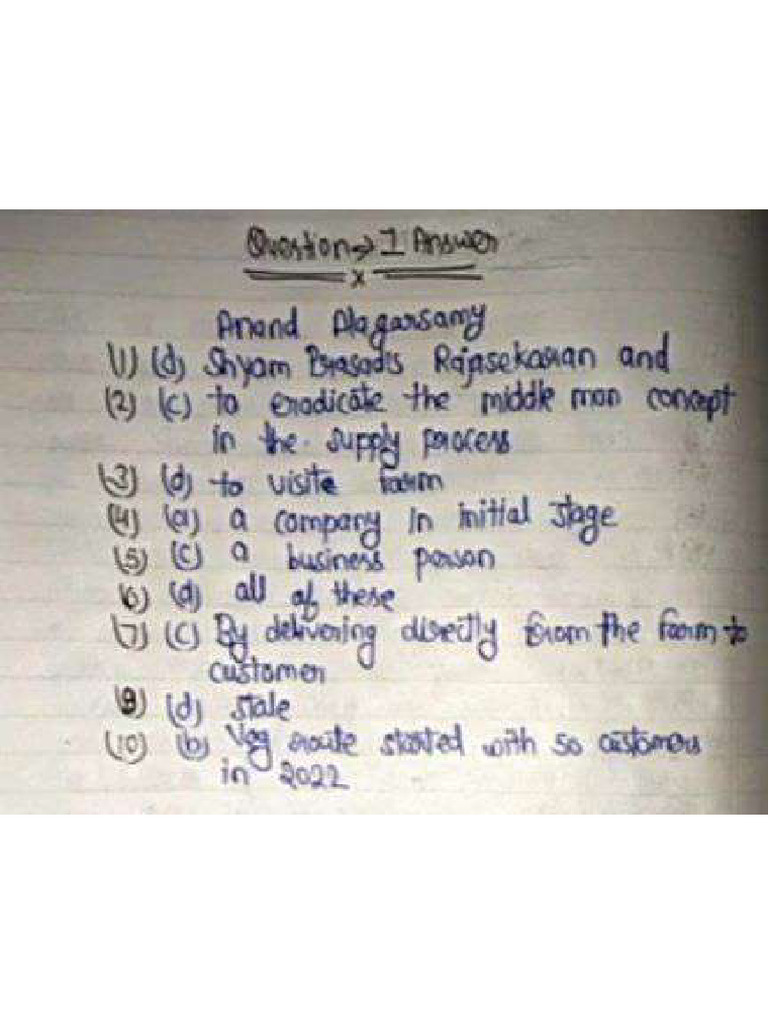 Question → 1 Answer
x
Anand Alagarsamy
(1) (d) Shyam Prasadis Rajasekaran and
(2) (c) to eradicate the middle man concept
in the supply process
(3) (d) to visite farm
(4) (a) a company in initial stage
(5) (c) a business person
(6) (d) all of these
(7) (c) By delivering directly from the farm to
customer
(9) (d) stale
(10) (b) Veg route started with 50 customers
in 2022